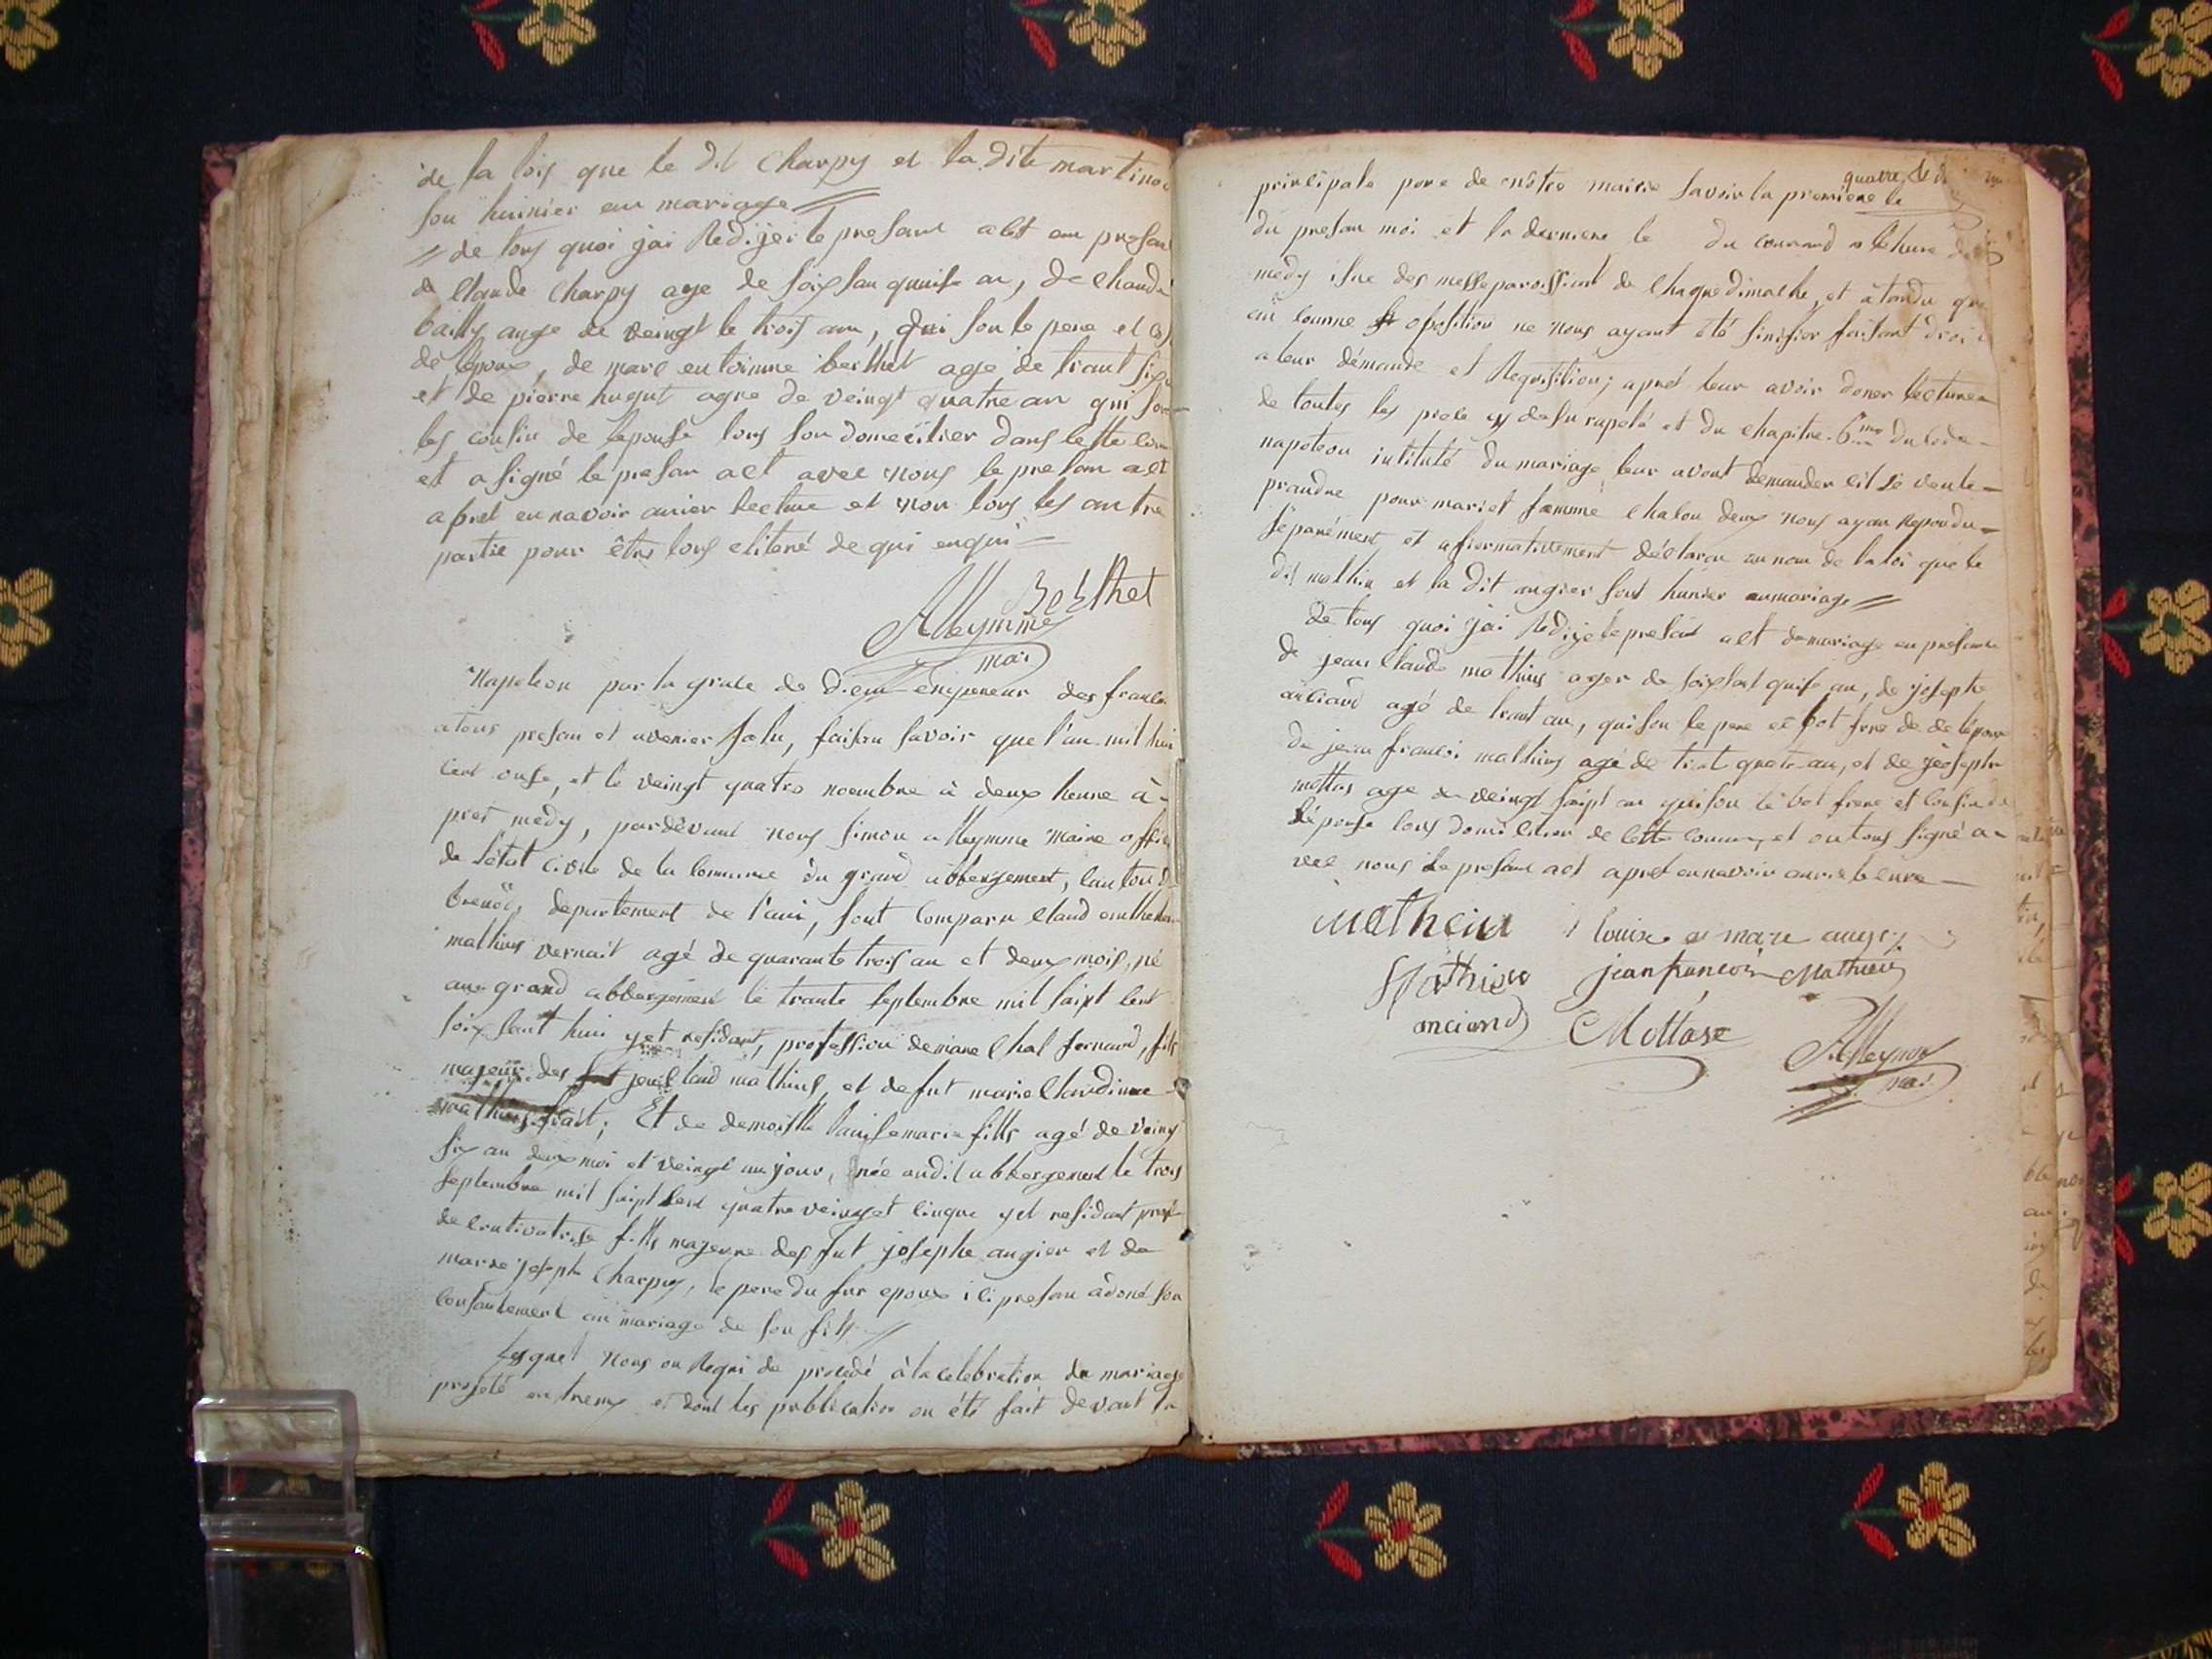 de la lois que le dit Charpy et la dite martinod
son huinier au mariage
de tous quoi jai Redijei le presant act au presan
de Claude Charpy age de soixsan quaise an, de Claude
bailly auge de veingt le trois ann, qui son le pere et
de lepoux, de marc entoinne berthet age de trant six
et de pierre hugut agee de veingt quatre an qui son
les cousin de lepouse tous son domecilier dans cette com
et a signé le presan act avec nous le presan act
apret en navoir aurier lecture et non tous les autre
partie pour être tous elitené de qui enqui
Berthet
Alleymme
mair
Napoleon par la grace de dieu empereur des france
atous presan et avenier salu, faison savoir que l'an mil hui
cent onse, et le veingt quatre noembre à deux heure à
pres medy, pardevant nous simon alleymme maire offic
de l'état civile de la commune du grand abbergement, canton d
brenod, departement de l'ain, sont comparu Claud
mathieu vernait agé de quarante trois an et deux mois, né
au grand abbergement le trante septembre mil saixt cent
soixsant huui yet residant, profession de marechal fernand, fils
majeur des jean Claud mathieu, et de fut marie Claudinne
frait; Et de demoiselle louise marie fills agé de veing
six an deux moi et veingt un jour, née audit abbergement le trois
septembre mil saixt cent quatre veing et cinque yet residant prof
de coutivatrise fills majeure des fut josephe augier et de
marie joseph Charpy, le pere du fur epoux ici presan adoné son
consantement au mariage de son fils
Lesquel nous on Requi de procedé à la celebration du mariage
projeté entreux et dont les publication on été fait devant la
quatre
principale pore de nôtre mairie savoir la première le
du presan moi et la derniere le du courand a lehure de
medy isue des messe paroissient de chaque dimanche, et atandu que
au coume oposition ne nous ayant été sinifier faisant droi
a leur démande et Requisition; apret leur avoir doner lecture
de toutes les piece cy desu rapelé et du chapitre 6me du code
napoleon intitulé du mariage leur avont demander cil se veule
prandre pour mariet famme chacou deux nous ayan Repondu
séparément et afirmativement déclaron au nom de la loi que le
dit mathiu et la dit augier sont hunier aumariage
de tous quoi jai Redije le presant act de mariage en presance
de jean Claude mathiu ager de soixsant quise an, de josephe
anciand agé de trant an, qui son le pere et bot frere de de lépoux
de jean francoi mathieu agé de trant quatr an, et de jéosephe
mottas age de veingt saipt an qui son le bot frere et cousin de
lépouse tous domicilier de cette commun, et on tous signé a
vec nous le presant act apret en navoir aurie lecture
Matheiu louise marie augier
Mathieu jean francois Mathieu
anciand Mottase
Alleymme
mair